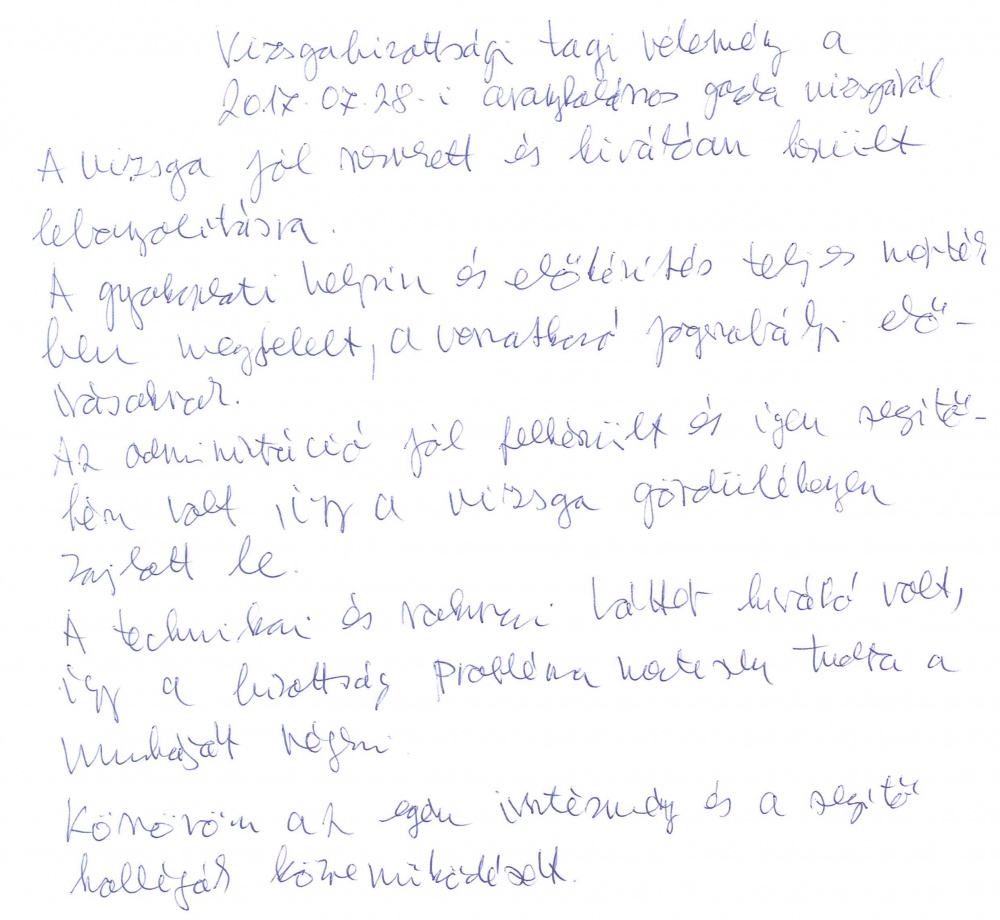 Vizsgabizottsági tagi vélemény a
2017.07.28-i aranykalászos gazda vizsgáról
A vizsga jól szervezett és kiválóan került
lebonyolításra.
A gyakorlati helyszín és előkészítés teljes mérték
ben megfelelt, a vonatkozó jogszabályi elő-
írásoknak.
Az adminisztráció jól felkészült és igen segítő-
kész volt, így a vizsga gördülékenyen
zajlott le.
A technikai és szakmai háttér kiváló volt,
így a bizottság probléma mentesen tudta a
munkáját végezni.
Köszönöm az egész intézmény és a segítő
kollégák közreműködését.